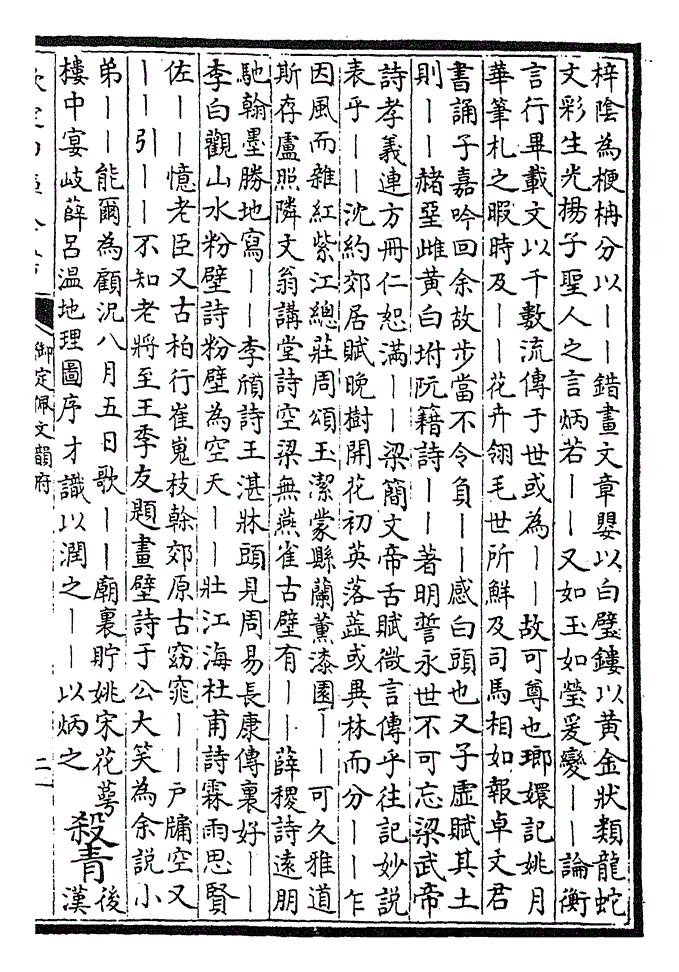 梓陰為梗柟分以丨丨錯畫文章嬰以白璧鏤以黃金狀類龍蛇
文彩生光揚子聖人之言炳若丨丨又如玉如瑩爰變丨丨論衡
言行畢載文以千數流傳于世或為丨丨故可尊也瑯嬛記姚月
華筆札之暇時及丨丨花卉翎毛世所鮮及司馬相如報卓文君
書誦子嘉吟回余故步當不令負丨丨感白頭也又子虛賦其土
則丨丨赭堊雌黃白坿阮籍詩丨丨著明誓永世不可忘梁武帝
詩孝義連方冊仁恕滿丨丨梁簡文帝舌賦微言傳乎往記妙說
表乎丨丨沈約郊居賦晚樹開花初英落蘂或異林而分丨丨乍
因風而雜紅紫江總莊周頌玉潔蒙縣蘭薰漆園丨丨可久雅道
斯存盧照隣文翁講堂詩空梁無燕雀古壁有丨丨薛稷詩遠朋
馳翰墨勝地寫丨丨李頎詩王湛牀頭見周易長康傳裏好丨丨
李白觀山水粉壁詩粉壁為空天丨丨壯江海杜甫詩霖雨思賢
佐丨丨憶老臣又古柏行崔嵬枝榦郊原古窈窕丨丨户牖空又
丨丨引丨丨不知老將至王季友題畫壁詩于公大笑為余說小
弟丨丨能爾為顧況八月五日歌丨丨廟裏貯姚宋花萼
樓中宴岐薛呂溫地理圖序才識以潤之丨丨以炳之
殺青
後
漢
御定佩文韻府
二